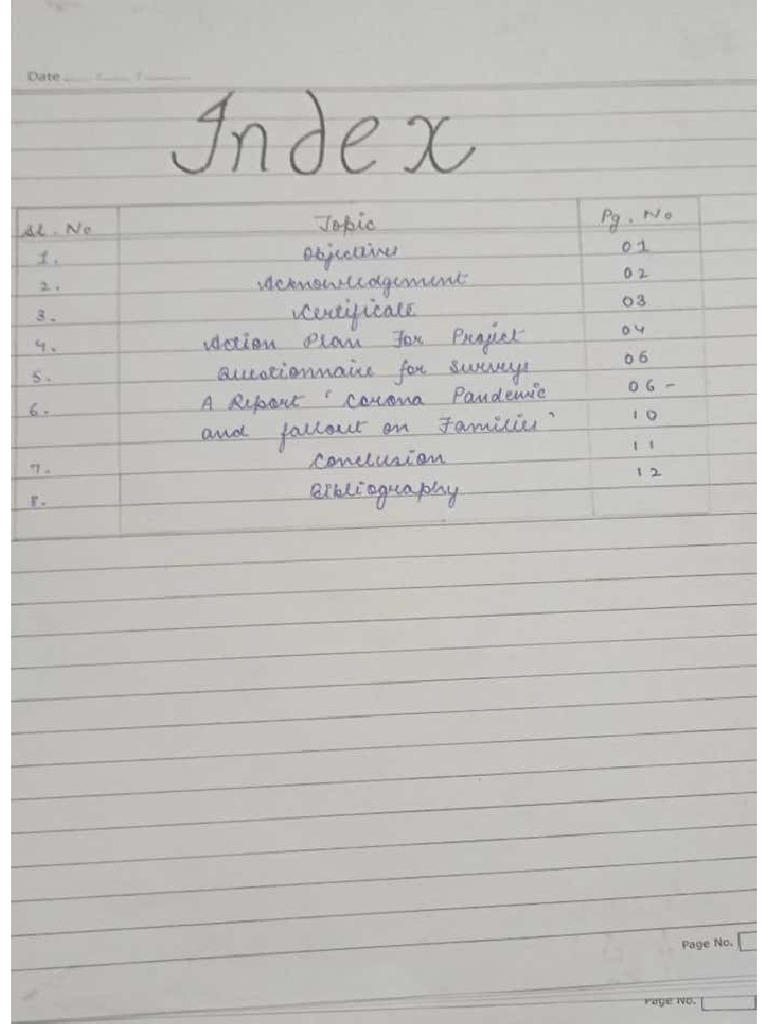 Date
Index
Sl. No Topic Pg. No
1. Objectives 01
2. Acknowledgement 02
3. Certificate 03
4. Action Plan For Project 04
5. Questionnaire for Surveys 06
6. A Report ' Corona Pandemic 06 -
and fallout on Families ' 10
7. Conclusion 11
8. Bibliography 12
Page No.
Page No.